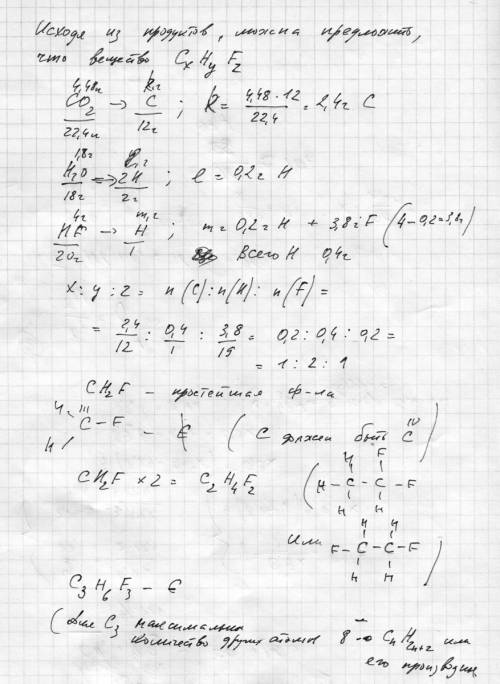 Исходя из продуктов, можна предложить,
что вещество CxHyFz
4,48л k,г
CO2 → C ; k = 4,48·12 / 22,4 = 2,4г C
22,4л 12г
1,8г l,г
H2O => 2H ; l = 0,2г H
18г 2г
4г m,г
HF → H ; m = 0,2г H + 3,8г F (4-0,2=3,8)
20г 1 Всего H 0,4г
x : y : z = n(C) : n(H) : n(F) =
= 2,4/12 : 0,4/1 : 3,8/19 = 0,2 : 0,4 : 0,2 =
= 1 : 2 : 1
CH2F – простейшая ф-ла
H III
C – F – (C должен быть C IV)
H
CH2F × 2 = C2H4F2
H F
H – C – C – F
H H
или
H H
F – C – C – F
H H
C3H6F3 –
(Для C3 максимальн
количество других атомов 8 CnH2n+2 или
его производн